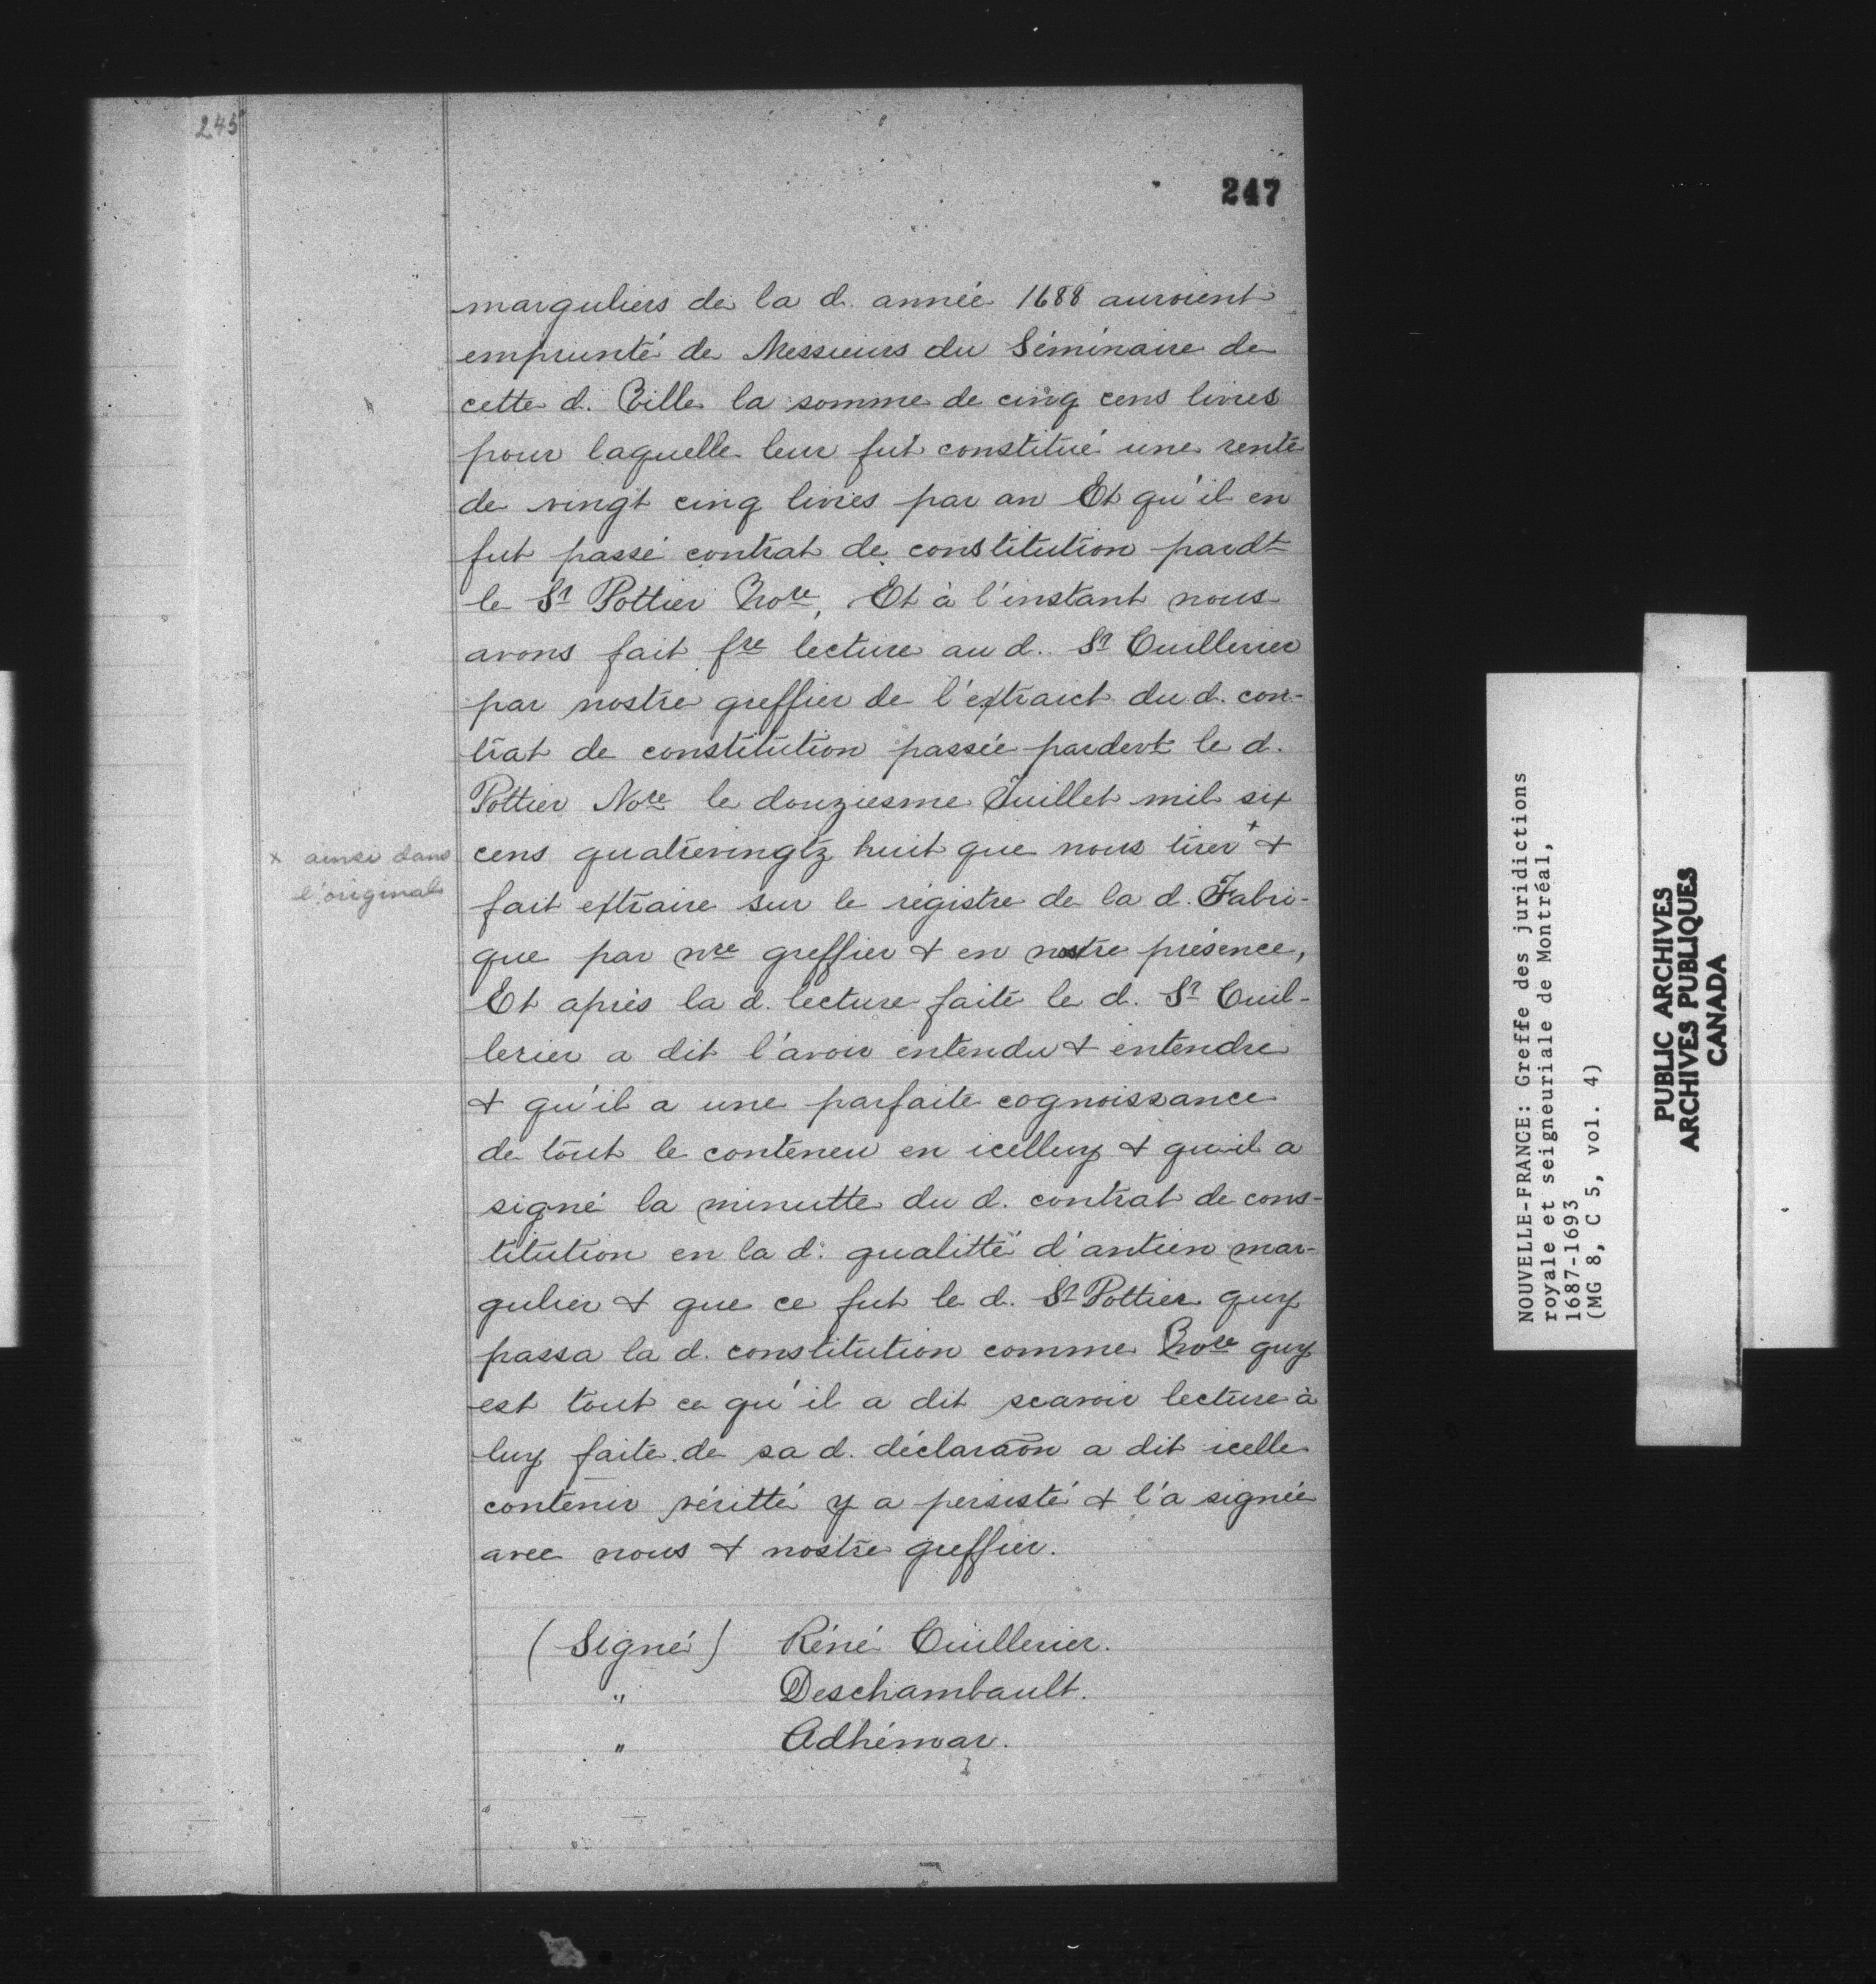 245
247
marguliers de la d. année 1688 auroient
emprunté de Messieurs du Séminaire de
cette d. Ville la somme de cinq cens livres
pour laquelle leur fut constitué une rente
de vingt cinq livres par an Et qu'il en
fut passé contrat de constitution pardt
le Sr Pottier Nore, Et à l'instant nous
avons fait fre lecture au d. Sr Cuillerier
par nostre greffier de l'extraict du d. con-
trat de constitution passée pardevt le d.
Pottier Nore le douziesme Juillet mil six
cens quatrevingtz huit que nous tirer + &
x ainsi dans
l'original
fait extraire sur le régistre de la d. Fabri-
que par nre greffier & en nostre présence,
Et après la d. lecture faite le d. Sr Cuil-
lerier a dit l'avoir entendu & entendre
& qu'il a une parfaite cognoissance
de tout le contenu en icelluy & qu'il a
signé la minutte du d. contrat de cons-
titution en la d. qualitté d'antien mar-
gulier & que ce fut le d. Sr Pottier quy
passa la d. constitution comme Nore quy
est tout ce qu'il a dit scavoir lecture à
luy faite de sa d. déclaraon a dit icelle
contenir véritté y a persisté & l'a signée
avec nous & nostre greffier.
(Signé) Réné Cuillerier.
" Deschambault.
" Adhémar.
NOUVELLE-FRANCE: Greffe des juridictions
royale et seigneuriale de Montréal,
1687-1693
(MG 8, C 5, vol. 4)
PUBLIC ARCHIVES
ARCHIVES PUBLIQUES
CANADA